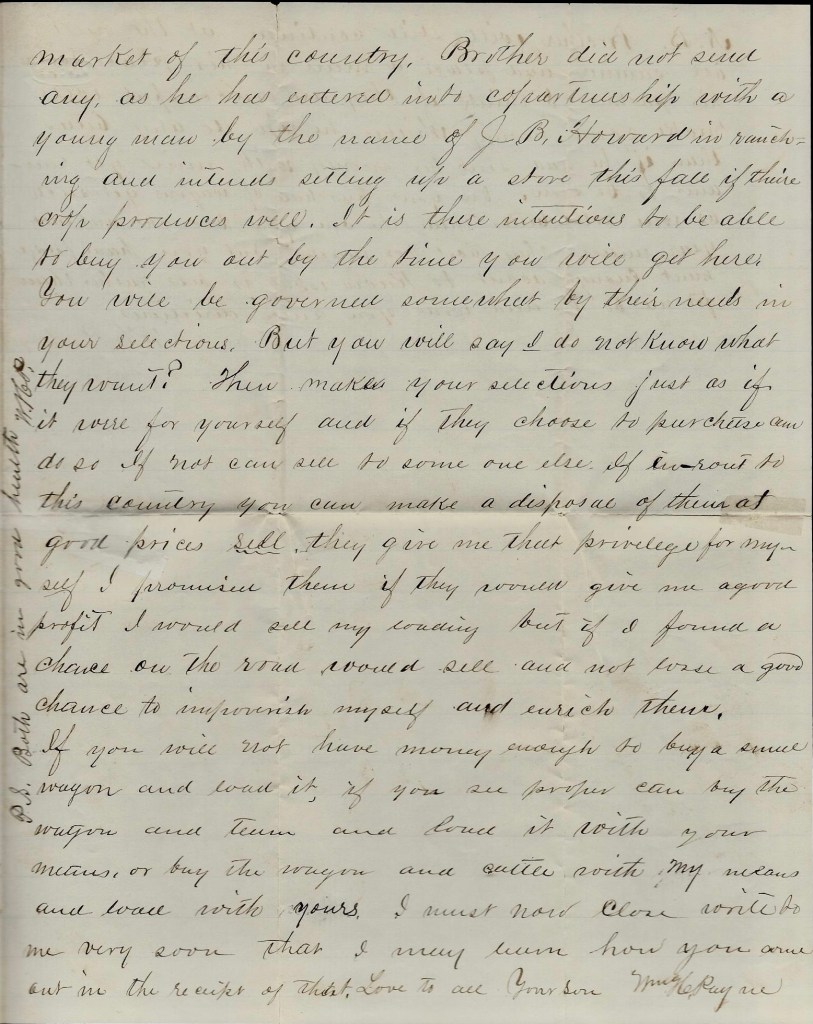 market of this country. Brother did not send
any, as he has entered into copartnership with a
young man by the name of J B. Howard in ranch=
ing and intends setting up a store this fall if thire
crop produces well. It is there intentions to be able
to buy you out by the time you will get here.
You will be governed somewhat by their needs in
your selections. But you will say I do not know what
they want? Then make your selections just as if
it were for yourself and if they choose to purchese can
do so If not can sell to some one else. If in-rout to
this country you can make a disposal of them at
good prices sell. they give me that privilege for my-
self I promised them if they would give me a good
profit I would sell my loading but if I found a
chance on the road would sell and not loose a good
chance to impoverish myself and enrich them.
If you will not have money enough to buy a small
wagon and load it, if you see proper can buy the
wagon and team and load it with your
means, or buy the wagon and cattle with my means
and load with yours. I must now close write to
me very soon that I may learn how you come
out in the receipt of that. Love to all Your son Wm H Payne
P.S. Both are in good health